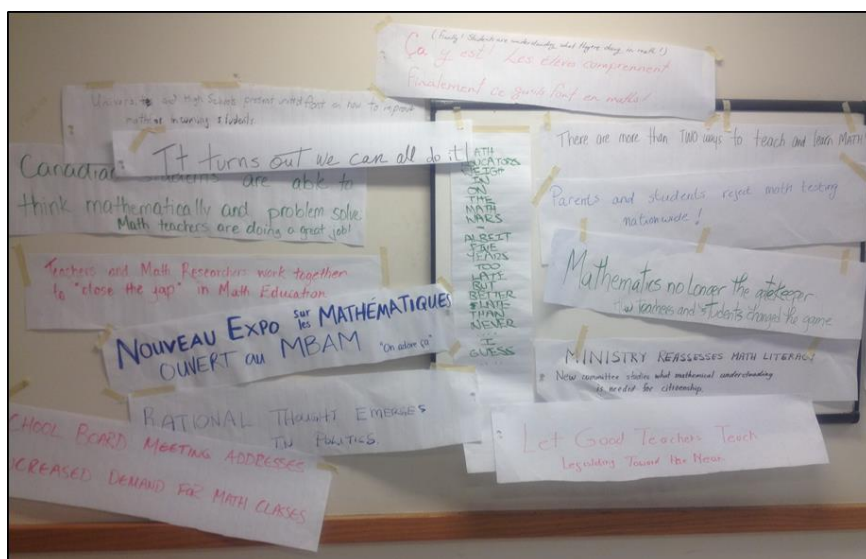 (Finally! Students are understanding what they're doing in math!)
Ça y est! Les élèves comprennent
finalement ce qu'ils font en maths!
and High Schools present united front on how to improve
math incoming students
It turns out we can all do it!
Canadian students are able to
think mathematically and problem solve.
Math teachers are doing a great job!
Teachers and Math Researchers work together
to "close the gap" in Math Education
NOUVEAU EXPO sur les MATHÉMATIQUES
OUVERT au MBAM "On adore ça"
RATIONAL THOUGHT EMERGES
IN POLITICS
CHOOL BOARD MEETING ADDRESSES
CREASED DEMAND FOR MATH CLASSES
ATH
DUCATORS
WEIGH
IN
ON
THE
MATH
WARS
-
ALBEIT
FIVE
YEARS
TOO
LATE
BUT
BETTER
LATE
THAN
NEVER
... I
GUESS
....
There are more than TWO ways to teach and learn MATH!
Parents and students reject math testing
nationwide!
Mathematics no longer the gatekeeper
teachers and students changed the game
MINISTRY REASSESSES MATH LITERACY
New committee studies what mathematical understanding
is needed for citizenship.
Let Good Teachers Teach
Legislating Toward the Mean